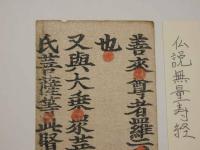 仏説無量寿経
善來尊者羅
也
又與大乘衆菩
氏菩薩等此賢